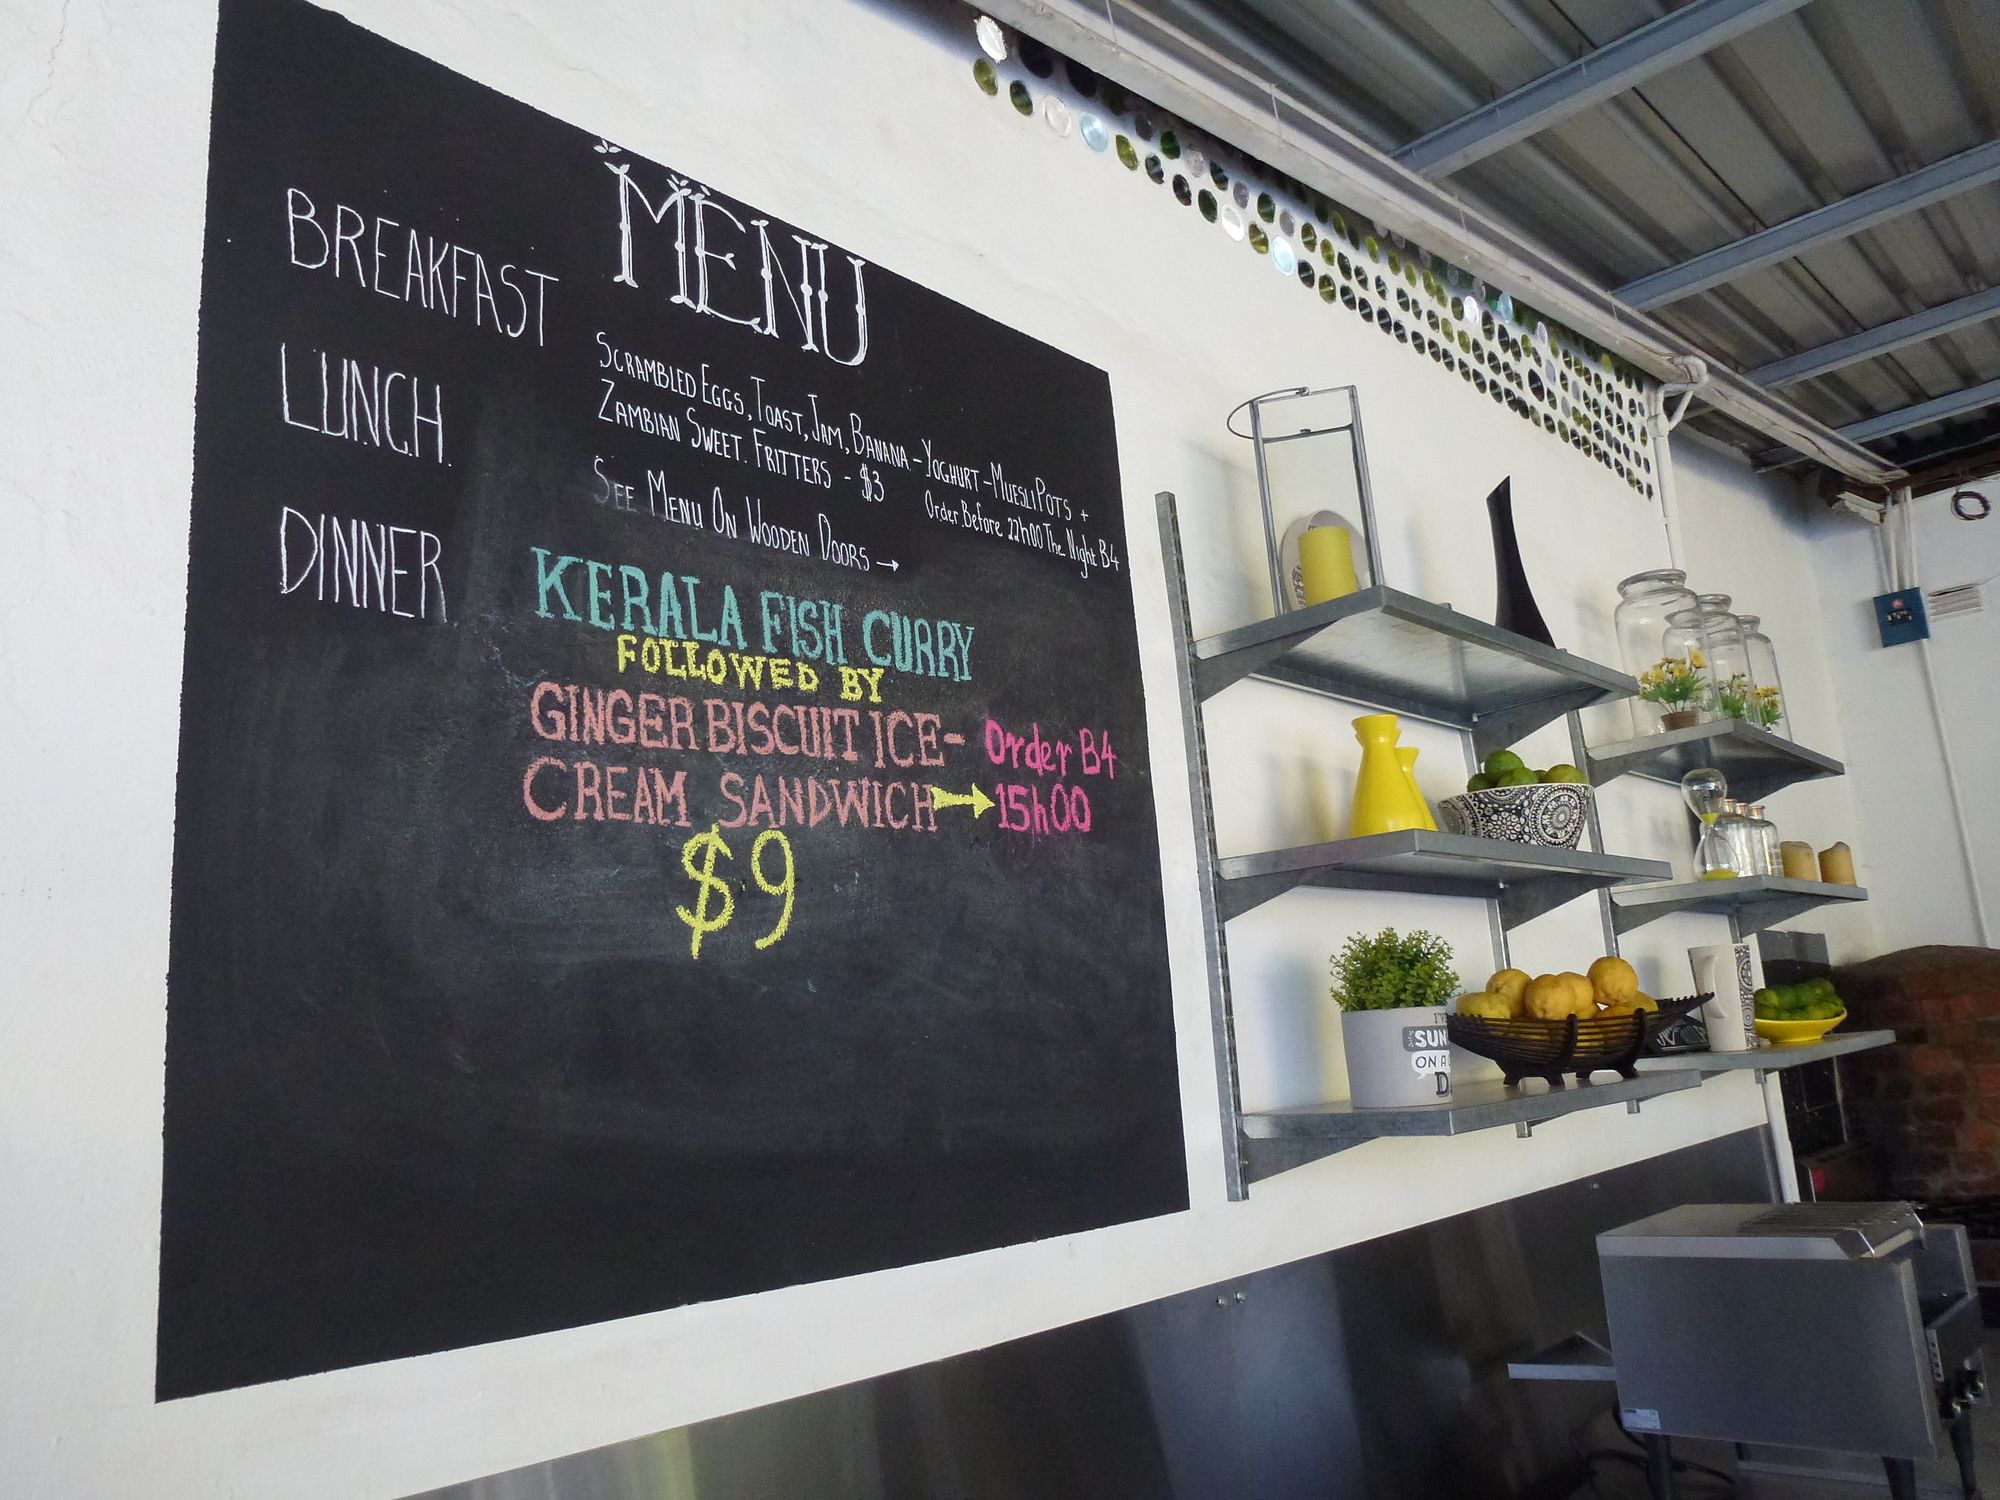 MENU
BREAKFAST
SCRAMBLED EGGS, TOAST, JAM, BANANA-YOGHURT-MUESLI POTS +
ZAMBIAN SWEET. FRITTERS - $3
Order Before 22h00 The Night B4
LUNCH.
SEE MENU ON WOODEN DOORS →
DINNER
KERALA FISH CURRY
FOLLOWED BY
GINGER BISCUIT ICE-
CREAM SANDWICH →
Order B4
15h00
$9
SUN
ON A
D